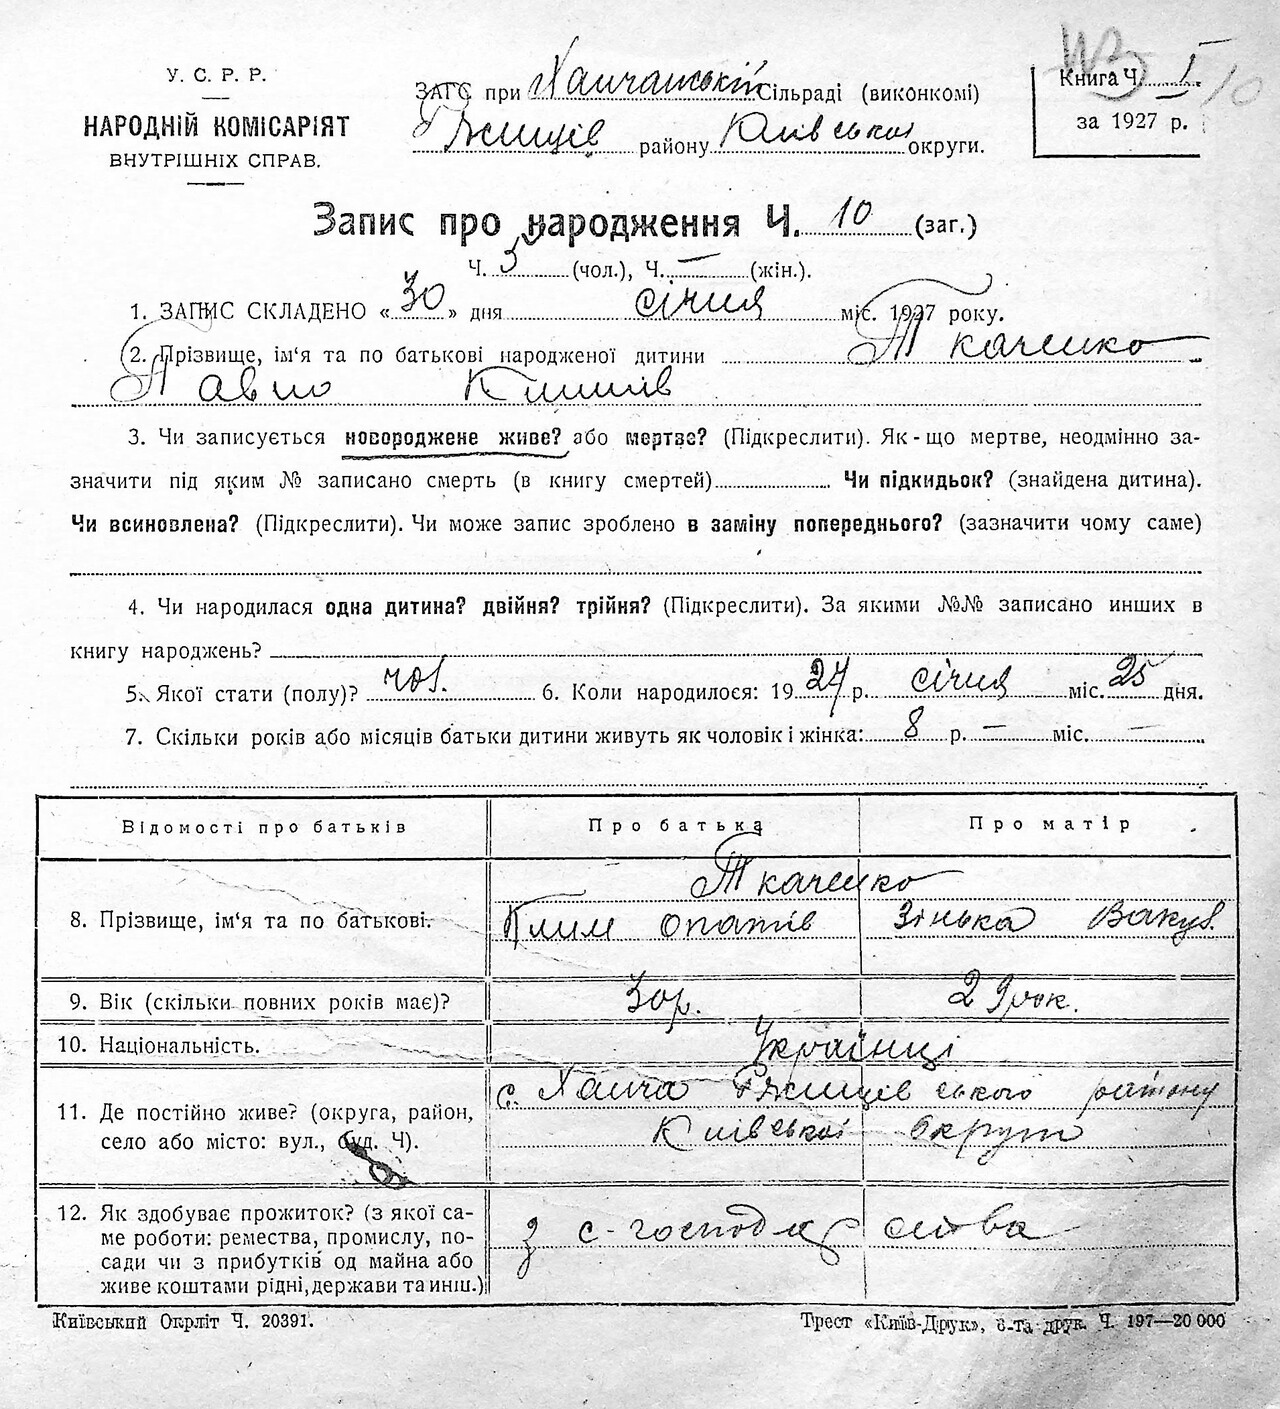 У. С. Р. Р.
НАРОДНІЙ КОМІСАРІЯТ
ВНУТРІШНІХ СПРАВ.
ЗАГС при Ханчанській Сільраді (виконкомі)
Ржищів району Київської округи.
Книга Ч. I
за 1927 р.
10
Запис про народження Ч. 10 (заг.)
Ч. 5 (чол.), Ч. — (жін.).
1. ЗАПИС СКЛАДЕНО « 30 » дня січня міс. 1927 року.
2. Прізвище, ім‘я та по батькові народженої дитини Ткаченко
Павло Климів
3. Чи записується новороджене живе? або мертве? (Підкреслити). Як-що мертве, неодмінно за-
значити під яким № записано смерть (в книгу смертей) Чи підкидьок? (знайдена дитина).
Чи всиновлена? (Підкреслити). Чи може запис зроблено в заміну попереднього? (зазначити чому саме)
4. Чи народилася одна дитина? двійня? трійня? (Підкреслити). За якими №№ записано инших в
книгу народжень?
5. Якої стати (полу)? чол. 6. Коли народилося: 1927 р. січня міс. 25 дня.
7. Скільки років або місяців батьки дитини живуть як чоловік і жінка: 8 р. — міс. —
Відомості про батьків Про батька Про матір
Ткаченко
8. Прізвище, ім‘я та по батькові. Клим Опатів Зінька Вакув.
9. Вік (скільки повних років має)? 30р. 29 рок.
10. Національність. Українці
11. Де постійно живе? (округа, район, с. Ханча Ржищівського району
село або місто: вул., буд. Ч). Київської округи
12. Як здобуває прожиток? (з якої са-
ме роботи: ремества, промислу, по- з с-господарства
сади чи з прибутків од майна або
живе коштами рідні, держави та инш.)
Київський Окрліт Ч. 20391. Трест «Київ-Друк», 6-та друк. Ч. 197—20 000